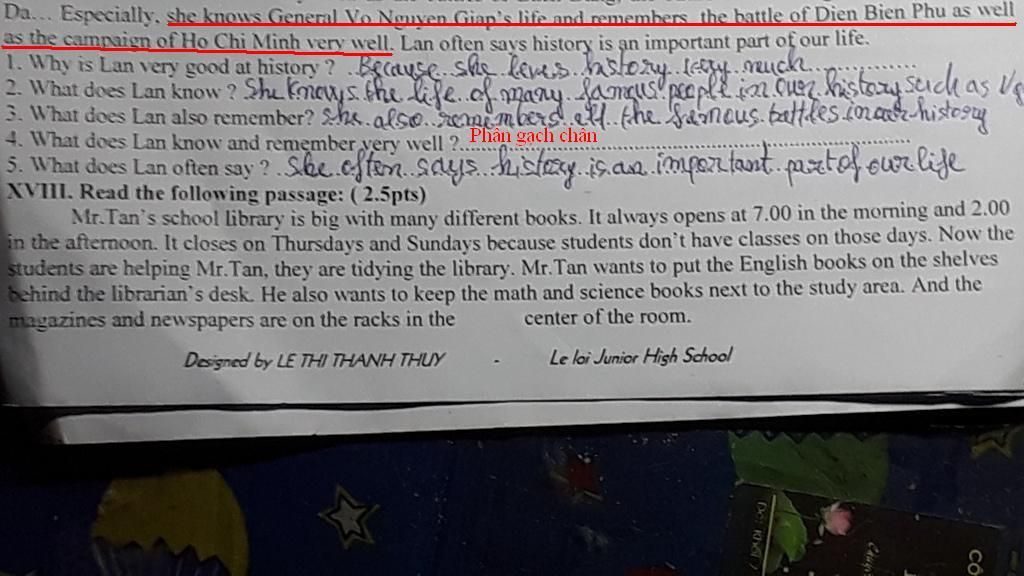 Da... Especially, she knows General Vo Nguyen Giap's life and remembers the battle of Dien Bien Phu as well
as the campaign of Ho Chi Minh very well. Lan often says history is an important part of our life.
1. Why is Lan very good at history ? Because she loves history very much
2. What does Lan know ? She knows the life of many famous people in our history such as
3. What does Lan also remember? She also remembers all the famous battles in our history
4. What does Lan know and remember very well ? Phần gạch chân
5. What does Lan often say ? She often says history is an important part of our life
XVIII. Read the following passage: ( 2.5pts)
Mr.Tan's school library is big with many different books. It always opens at 7.00 in the morning and 2.00
in the afternoon. It closes on Thursdays and Sundays because students don't have classes on those days. Now the
students are helping Mr.Tan, they are tidying the library. Mr.Tan wants to put the English books on the shelves
behind the librarian's desk. He also wants to keep the math and science books next to the study area. And the
magazines and newspapers are on the racks in the center of the room.
Designed by LE THI THANH THUY - Le loi Junior High School